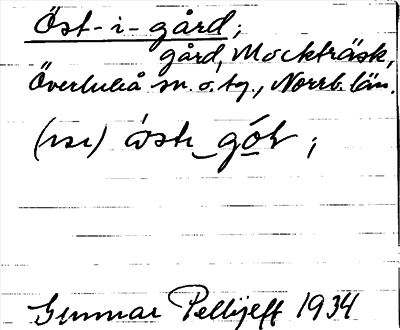 Öst-i-gård;
gård, Mockträsk,
Överluleå sn. o. tg., Norrb. län.
Gunnar Pellijeff 1934